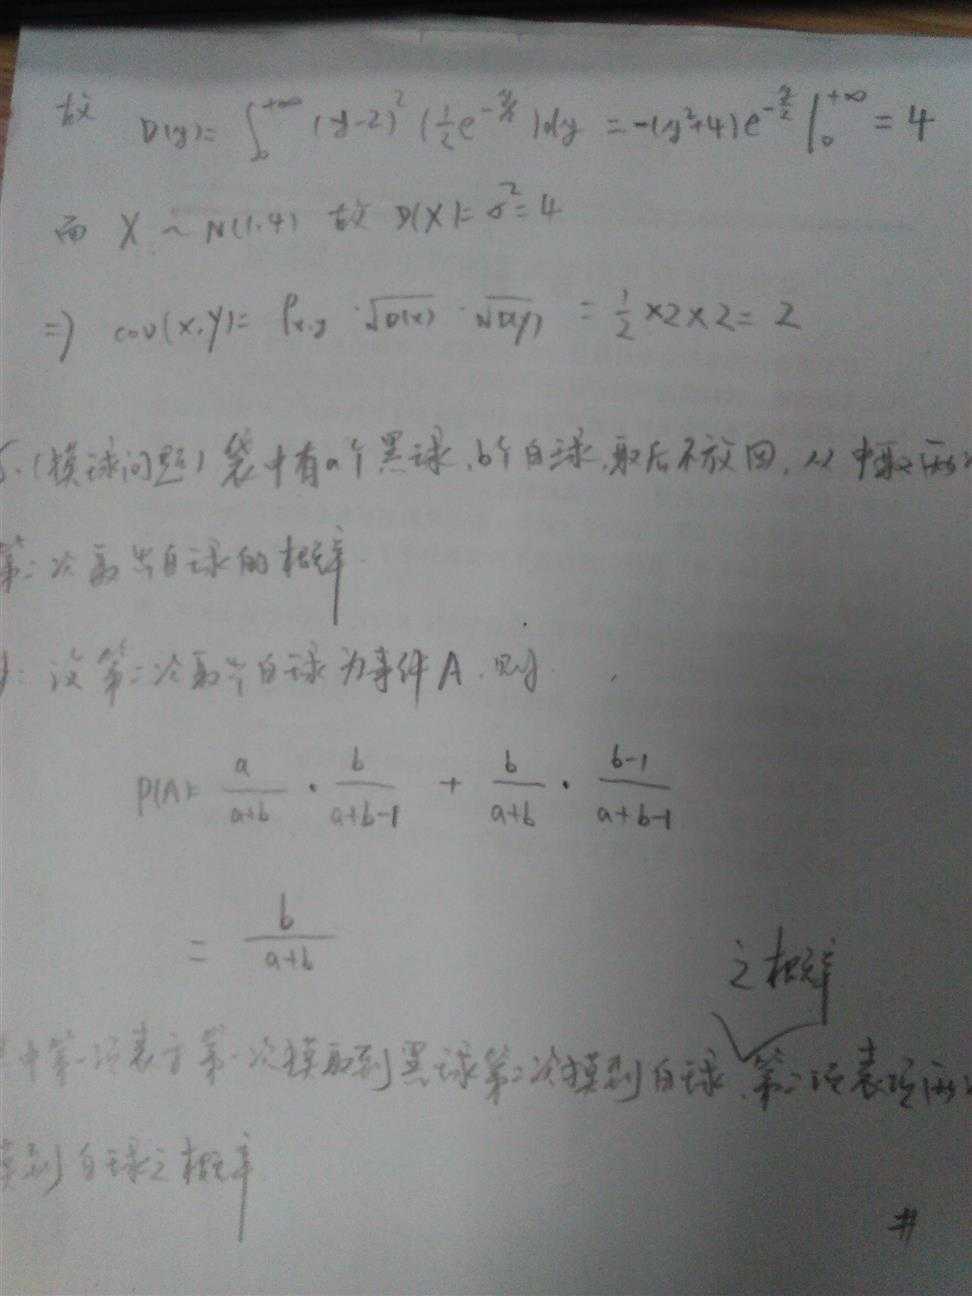 故 D(y)= ∫₀^{+∞} (y-2)² (½e^{-y/2})dy = -(y²+4)e^{-y/2} |₀^{+∞} = 4
而 X ~ N(1,4) 故 D(X)= σ²=4
=) cov(X,Y)= ρx,y · √D(x) · √D(y) = ½ ×2×2= 2
5.(摸球问题) 袋中有a个黑球,b个白球,取后不放回,从中取两
第二次取出白球的概率
: 设第二次取出白球为事件A.则
P(A)= a/(a+b) · b/(a+b-1) + b/(a+b) · (b-1)/(a+b-1)
= b/(a+b)
之概率
中第一项表示第一次摸取到黑球第二次摸到白球,第二项表项两
摸到白球之概率
#